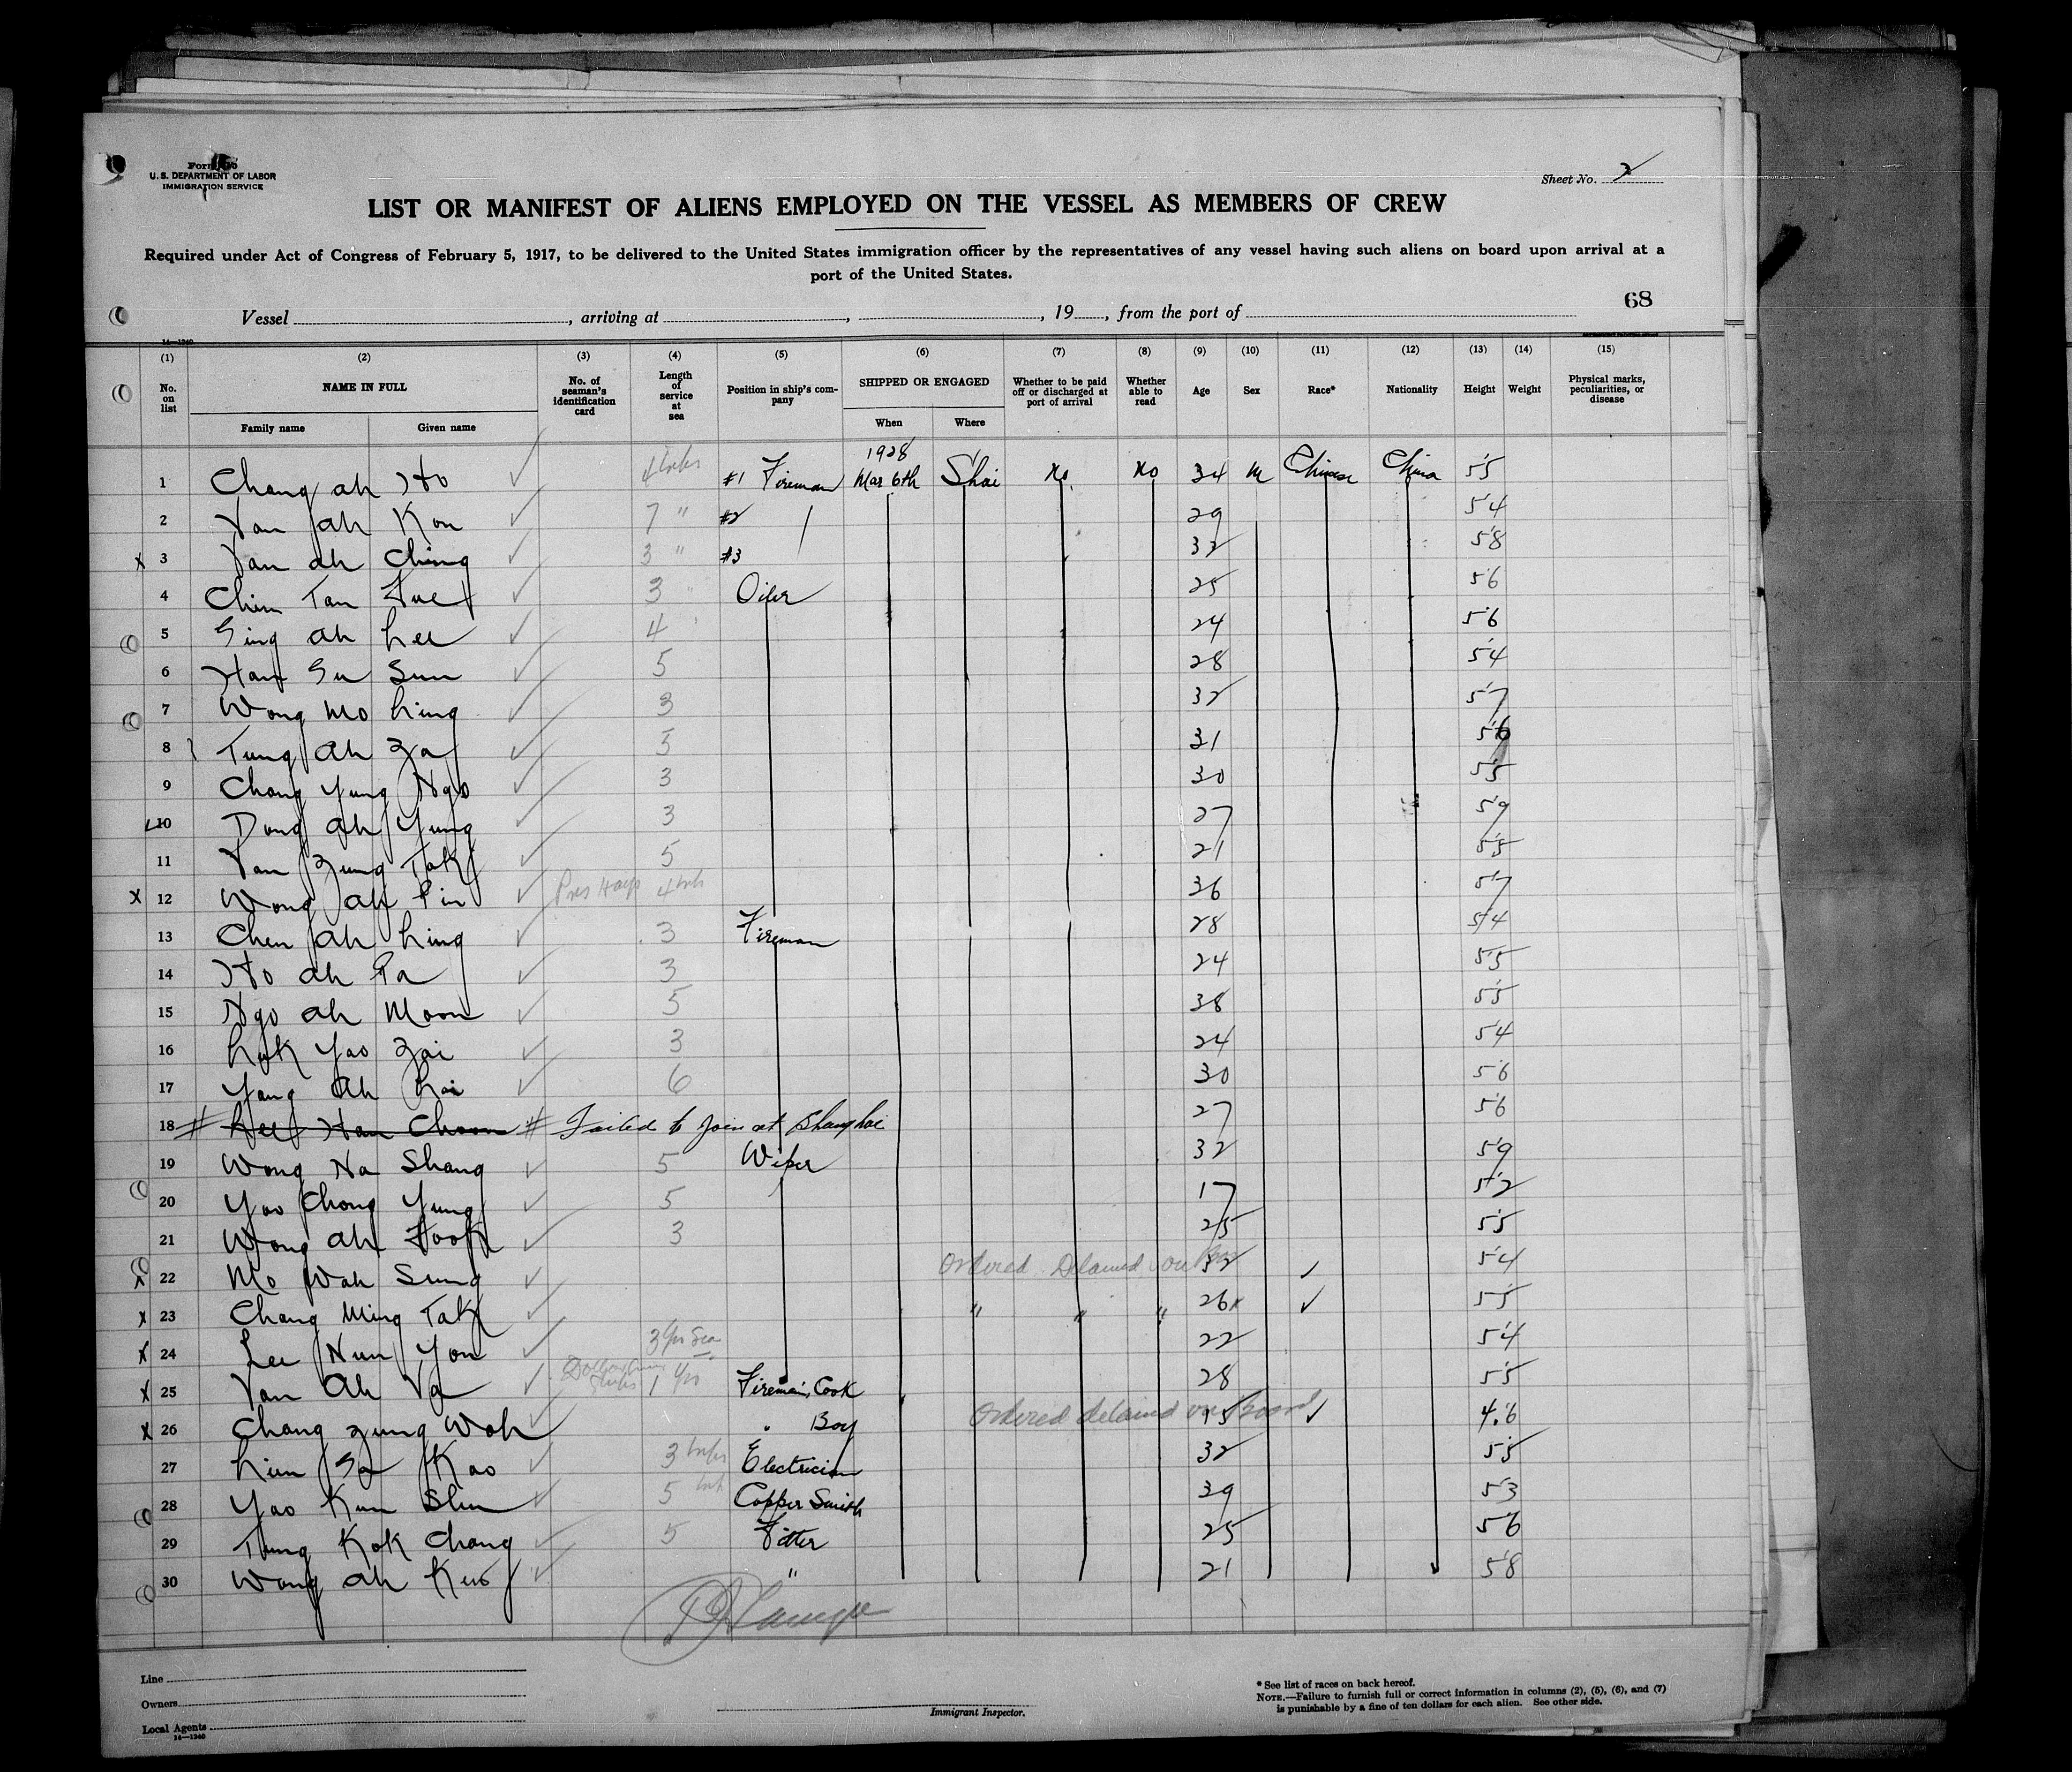 U. S. DEPARTMENT OF LABOR
IMMIGRATION SERVICE
Sheet No. 2
LIST OR MANIFEST OF ALIENS EMPLOYED ON THE VESSEL AS MEMBERS OF CREW
Required under Act of Congress of February 5, 1917, to be delivered to the United States immigration officer by the representatives of any vessel having such aliens on board upon arrival at a
port of the United States.
68
Vessel , arriving at , , 19 , from the port of
14—1240
(1) (2) (3) (4) (5) (6) (7) (8) (9) (10) (11) (12) (13) (14) (15)
No. on list NAME IN FULL Family name Given name No. of seaman's identification card Length of service at sea Position in ship's company SHIPPED OR ENGAGED When Where Whether to be paid off or discharged at port of arrival Whether able to read Age Sex Race* Nationality Height Weight Physical marks, peculiarities, or disease
1928
1 Chang ah Ho #1 Fireman Mar 6th S'hai No No 34 M Chinese China 5'5
2 Van ah Kon 7 " #2 29 5'4
x 3 Van ah Ching 3 " #3 32 5'8
4 Chim Tan Fue 3 " Oiler 25 5'6
5 Sing ah Lee 4 24 5'6
6 Han Su Sun 5 28 5'4
7 Wong Mo Ling 3 32 5'7
8 Tung ah Za 5 31 5'6
9 Chong Yung Ngo 3 30 5'5
10 Dong ah Yung 3 27 5'9
11 Van Zung Tak 5 21 5'5
x 12 Wong ah Pin Pres Hays 4 36 5'7
13 Chen ah Ling 3 Fireman 28 5'4
14 Ho ah Pa 3 24 5'5
15 Ngo ah Moon 5 38 5'5
16 Lok Yao Zai 3 24 5'4
17 Yang ah Lai 6 30 5'6
18 # Lee Han Choon # Failed to join at Shanghai 27 5'6
19 Wong Na Shang 5 Wiper 32 5'9
20 Yao Chong Yung 5 17 5'2
21 Wong ah Fook 3 25 5'5
x 22 Mo Wah Sung Ordered Detained on 32 5'4
x 23 Chang Ming Tak " " " 26 5'5
x 24 Lee Nun You 3 yrs Sea 22 5'4
x 25 Van ah Va 1 yrs Firemain, Cook 28 5'5
x 26 Chang Zung Wah " Boy Ordered detained on Board 15 4.6
27 Lim Sa Kao 3 Electrician 32 5'5
28 Yao Kun Shu 5 Copper Smith 39 5'3
29 Tung Kok Chang 5 Fitter 25 5'6
30 Wong ah Kuo " 21 5'8
Line
Owners
Local Agents
14—1240
Immigrant Inspector.
* See list of races on back hereof.
NOTE.—Failure to furnish full or correct information in columns (2), (5), (6), and (7)
is punishable by a fine of ten dollars for each alien. See other side.